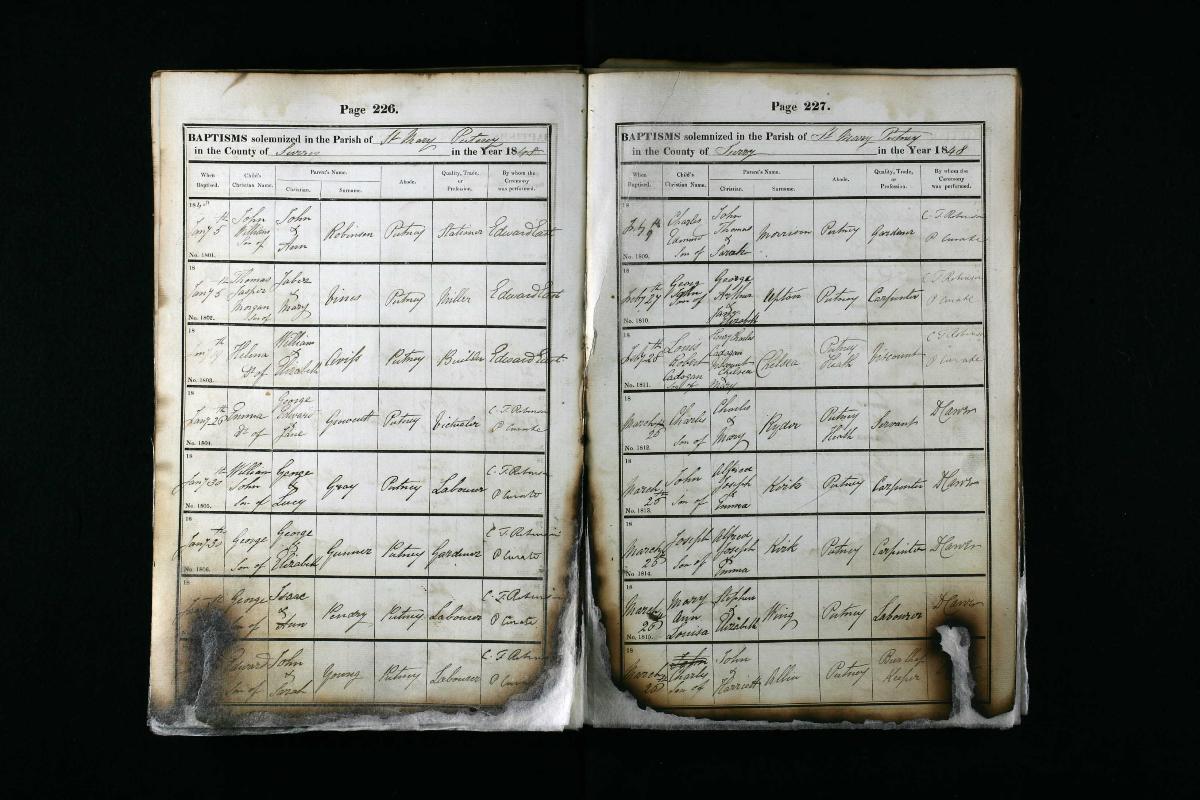 Page 226.
BAPTISMS solemnized in the Parish of St Mary Putney
in the County of in the Year 1848
When Baptised. Child's Christian Name. Parent's Name. Christian. Surname. Abode. Quality, Trade, or Profession. By whom the Ceremony was performed.
Jany 5th John William Son of John & Ann Robinson Putney Edward East
No. 1801.
Jany 5th Thomas Jasper Morgan Son of Jabez & Mary Vines Putney Miller Edward East
No. 1802.
18 Helena Dr of William & Elizabeth Aviss Putney Builder Edward East
No. 1803.
18 Jany 26th Emma Dr of George Edward & Jane Putney C. T. Robinson P Curate
No. 1804.
18 Jany 30th William John Son of George & Lucy Gray Putney Labourer C. T. Robinson P Curate
No. 1805.
18 Jany 30th George Son of George & Elizabeth Gunner Putney Gardener C T Robinson P Curate
No. 1806.
18 George Son of Isaac & Ann Pendry Putney Labourer C. T. Robinson P Curate
Edward Son of John & Sarah Young Putney Labourer C. T. Robinson P Curate
Page 227.
BAPTISMS solemnized in the Parish of St Mary Putney
in the County of Surry in the Year 1848
When Baptised. Child's Christian Name. Parent's Name. Christian. Surname. Abode. Quality, Trade, or Profession. By whom the Ceremony was performed.
18 Charles Edmund Son of John Thomas & Sarah Morrison Putney Gardener C. T. Robinson P Curate
No. 1809.
18 Feby 27th George Son of George Arthur & Jane Elizabeth Upton Putney Carpenter C T Robinson P Curate
No. 1810.
18 Feby 28th Louis Robert Cadogan Son of Henry Charles Cadogan Viscount Chelsea & Mary Chelsea Putney Heath Viscount C T Robinson P Curate
No. 1811.
18 March 26 Charles Son of Charles & Mary Ryder Putney Heath Servant
No. 1812.
18 March 26 John Son of Alfred Joseph & Emma Kirk Putney Carpenter
No. 1813.
18 March 26 Joseph Son of Alfred Joseph & Emma Kirk Putney Carpenter
No. 1814.
18 March 26 Mary Ann Louisa Stephen & Elizabeth Wing Putney Labourer
No. 1815.
18 March 26 Charles Son of John & Harriett Allen Putney Keeper